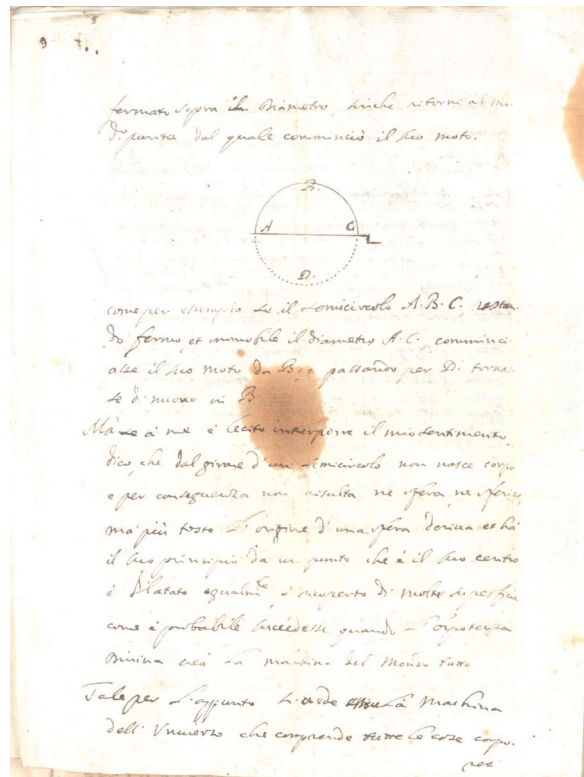 9
fermato sopra il Diametro, sinche ritorni al me-
d.º punto dal quale commincio il suo moto.
B.
A C
D.
come per essempio se il semicircolo A. B. C. restan
do fermo, et immobile il diametro A. C. comminci
asse il suo moto da B, e passando per D. tornas
se di nuovo in B
Mà se à me è lecito interporre il mio sentimento,
dico, che dal girare d'un semicircolo non nasce corpo
e per conseguenza non risulta, ne sfera, ne sferico,
ma più tosto l'origine d'una sfera deriva et hà
il suo principio da un punto che è il suo centro
ò dilatato egualm.te ò ricoperto di molte superficie
come è probabile succedesse quando l'Onipotenza
Divina creò la machina del Mondo tutto
Tale per l'appunto si vede essere la Machina
dell' Universo che comprende tutte le cose corpo-
ree